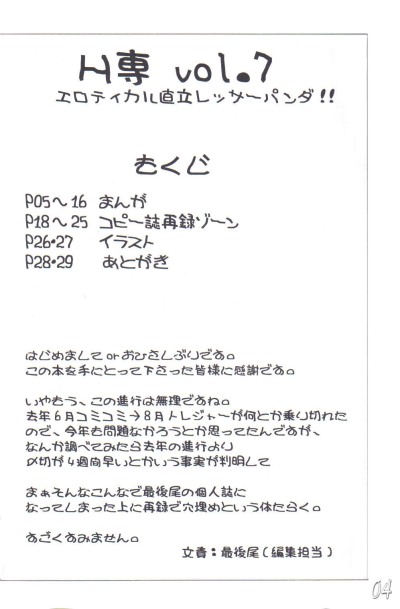 H専 vol.7
エロティカル直立レッサーパンダ!!
もくじ
P05～16 まんが
P18～25 コピー誌再録ゾーン
P26・27 イラスト
P28・29 あとがき
はじめまして or おひさしぶりです。
この本を手にとって下さった皆様に感謝です。
いやもう、この進行は無理ですね。
去年6月コミコミ→8月トレジャーが何とか乗り切れた
ので、今年も問題なかろうとか思ってたんですが、
なんか調べてみたら去年の進行より
〆切が4週間早いとかいう事実が判明して
まぁそんなこんなで最後尾の個人誌に
なってしまった上に再録で穴埋めという体たらく。
すごくすみません。
文責：最後尾(編集担当)
04